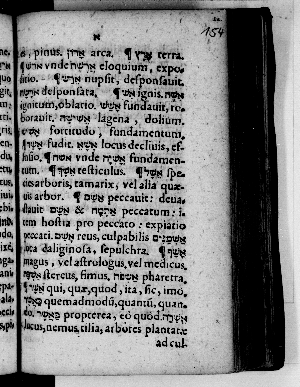 154
א
, pinus. ארון arca. ¶ ארץ terra.
¶ ארש vnde ארשת eloquium, expo-
sitio. ¶ ארש nupsit, desponsauit.
desponsata. ¶ אש ignis. אשה
ignitum, oblatio. אשש fundauit, ro-
borauit. lagena, dolium.
fortitudo, fundamentum.
¶ fudit. אשד locus decliuis, ef-
fusio. ¶ vnde fundamen-
tum. ¶ אשך testiculus. ¶ אשל spe-
cies arboris, tamarix, vel alia quæ-
uis arbor. ¶ אשם peccauit: deua-
stauit אשמה & אשם peccatum: i-
tem hostia pro peccato: expiatio
peccati. אשם reus, culpabilis
loca caliginosa, sepulchra. ¶ אשף
magus, vel astrologus, vel medicus.
stercus, fimus. אשפה pharetra.
¶ אשר qui, quæ, quod, ita, sic, imo.
כאשר quemadmodū, quantū, quan-
do. באשר propterea, eò quod. אשרה
lucus, nemus, tilia, arbores plantatæ
ad cul-